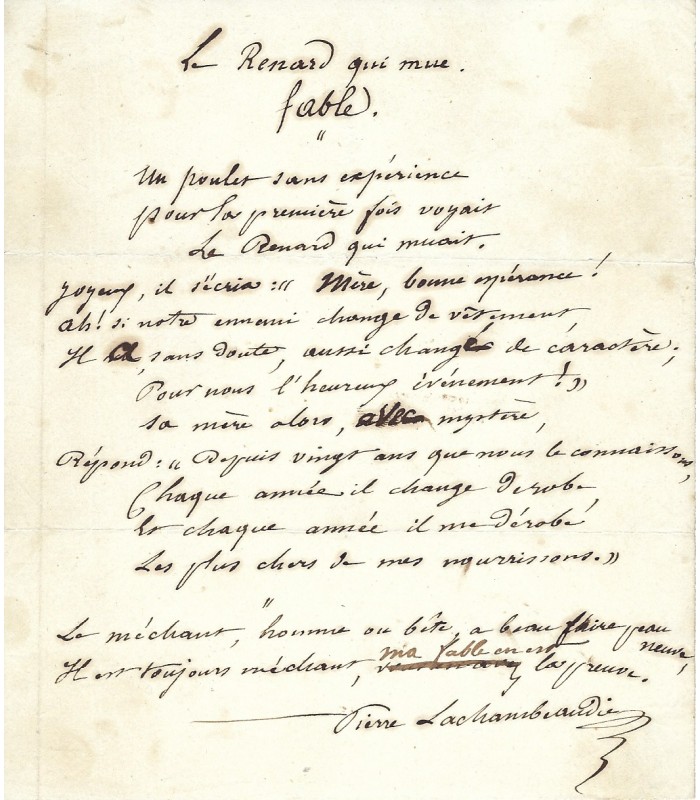 Le Renard qui mue.
fable.
"
Un poulet sans expérience
pour la première fois voyait
Le Renard qui muait.
Joyeux, il s'écria : « Mère, bonne espérance !
Ah ! si notre ennemi change de vêtement,
Il a, sans doute, aussi changé de caractère ;
Pour nous l'heureux événement ! »
Sa mère alors, avec mystère,
Répond : « Depuis vingt ans que nous le connaissons,
Chaque année il change de robe,
Et chaque année il me dérobe
Les plus chers de mes nourrissons. »
"
Le méchant, homme ou bête, a beau faire peau neuve,
Il est toujours méchant, ma fable en est la preuve.
Pierre Lachambeaudie